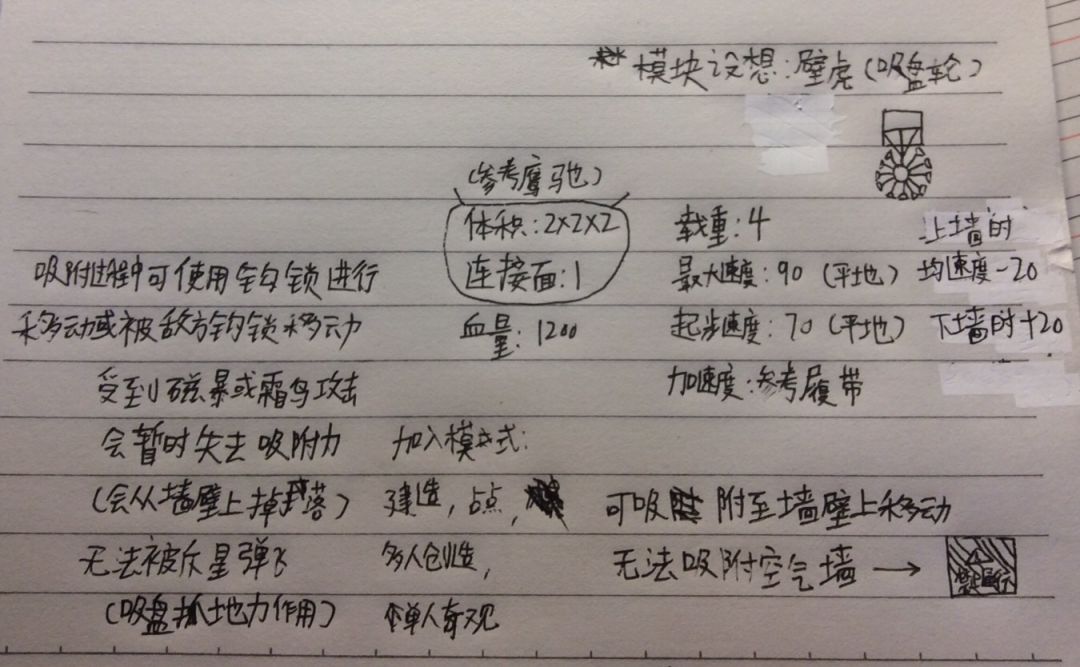 模块设想:壁虎(吸盘轮)
(参考鹰驰)
体积:2×2×2
连接面:1
血量:1200
载重:4
最大速度:90(平地)
起步速度:70(平地)
加速度:参考履带
上墙时
均速度-20
下墙时+20
吸附过程中可使用钩锁进行
移动或被敌方钩锁移动
受到磁暴或霜鸟攻击
会暂时失去吸附力
(会从墙壁上掉落)
无法被灰星弹飞
(吸盘抓地力作用)
加入模式:
建造,占点,
多人创造,
单人奇观
可吸附至墙壁上移动
无法吸附空气墙→